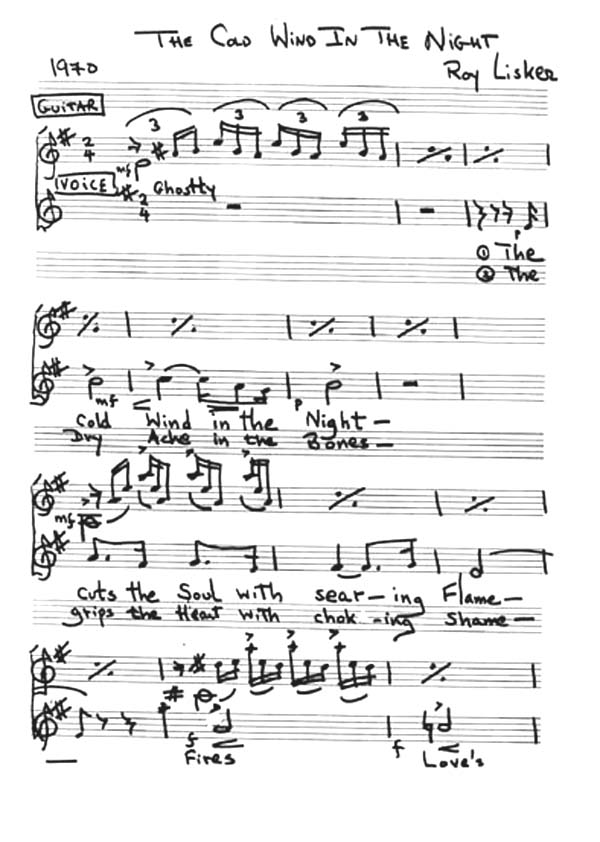 THE COLD WIND IN THE NIGHT
1970 Roy Lisker
GUITAR
3 3 3 3
2
4
mf
VOICE
Ghostly
2
4
p
① The
② The
mf p
Cold Wind in the Night —
Dry Ache in the Bones —
mf
cuts the Soul with sear — ing Flame —
grips the Heart with chok — ing Shame —
f f
Fires Love's